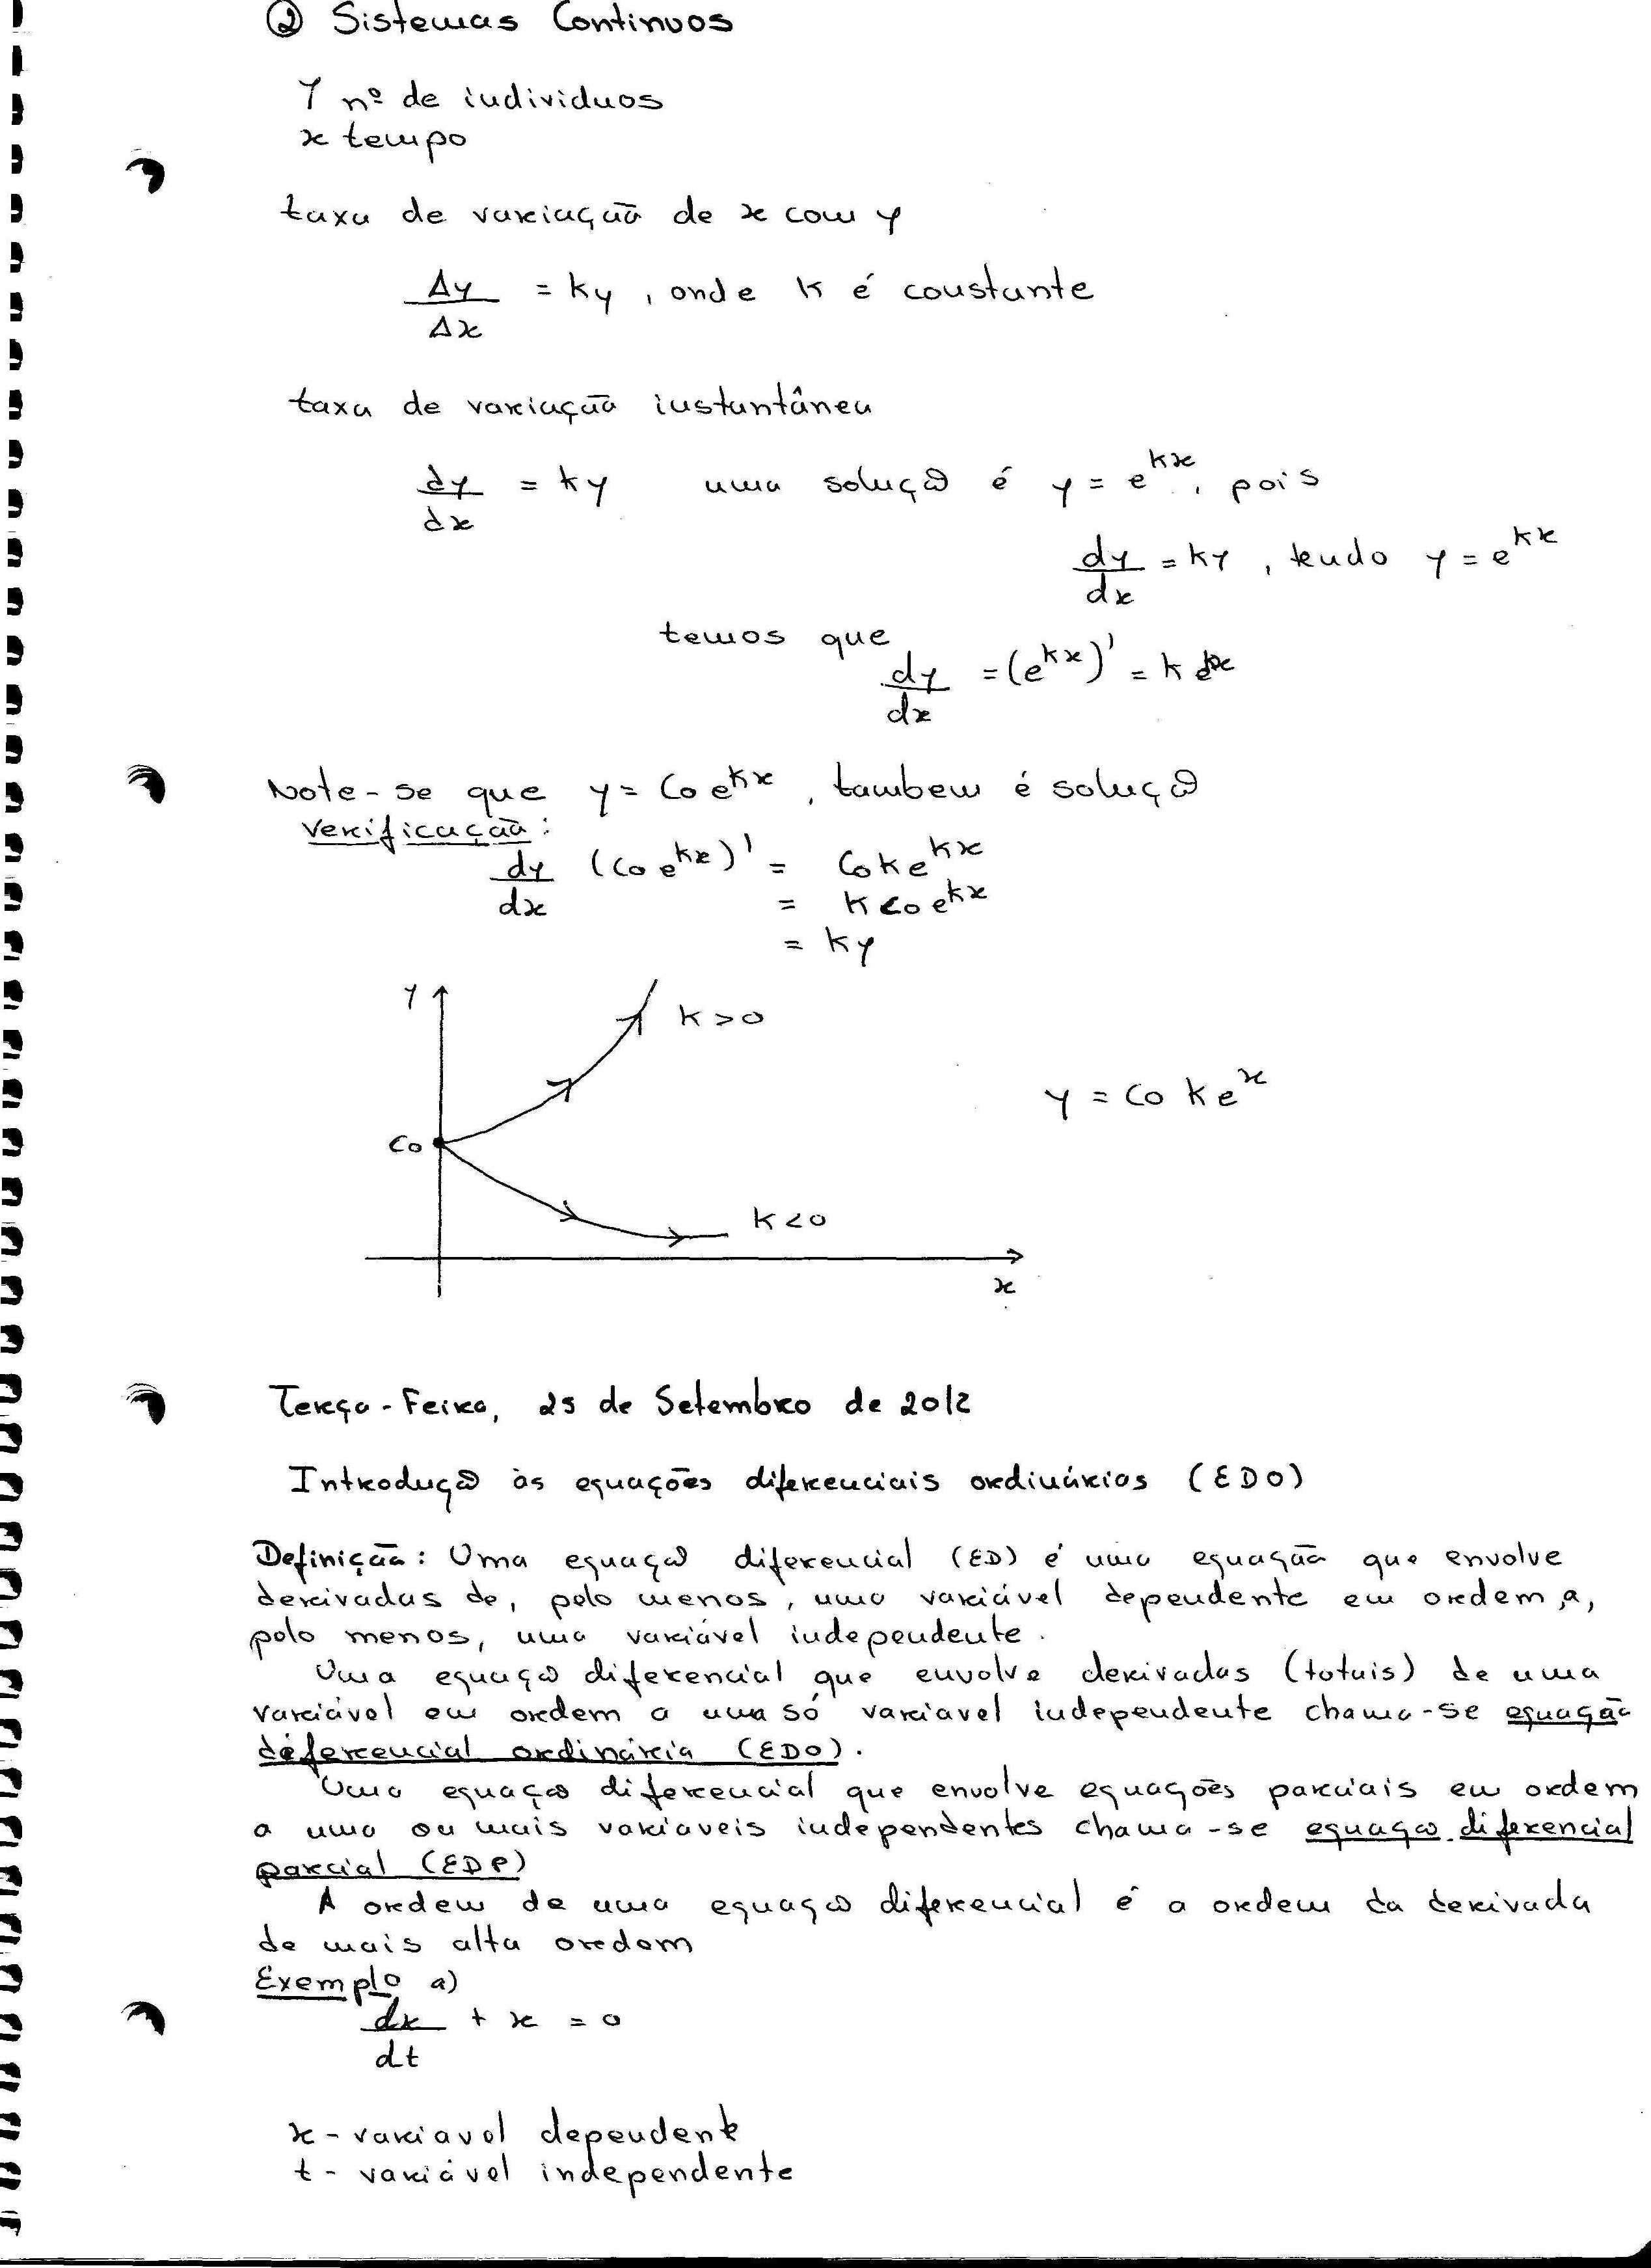 ② Sistemas Continuos
Y nº de individuos
x tempo
taxa de variação de x com y
Δy/Δx = ky, onde k é constante
taxa de variação instantânea
dy/dx = ky uma solução é y = e^kx, pois
dy/dx = ky, tendo y = e^kx
temos que
dy/dx = (e^kx)' = k e^kx
Note-se que y = Co e^kx, tambem é solução
Verificação:
dy/dx (Co e^kx)' = Co k e^kx
= k Co e^kx
= ky
y
k > 0
y = Co k e^x
Co
k < 0
x
Terça-Feira, 25 de Setembro de 2012
Introdução às equações diferenciais ordinárias (EDO)
Definição: Uma equação diferencial (ED) é uma equação que envolve
derivadas de, pelo menos, uma variável dependente em ordem, a,
pelo menos, uma variável independente.
Uma equação diferencial que envolve derivadas (totais) de uma
variável em ordem a uma só variavel independente chama-se equação
diferencial ordinária (EDO).
Uma equação diferencial que envolve equações parciais em ordem
a uma ou mais variaveis independentes chama-se equação diferencial
parcial (EDP)
A ordem de uma equação diferencial é a ordem da derivada
de mais alta ordem
Exemplo a)
dx/dt + x = 0
x - variavel dependente
t - variável independente